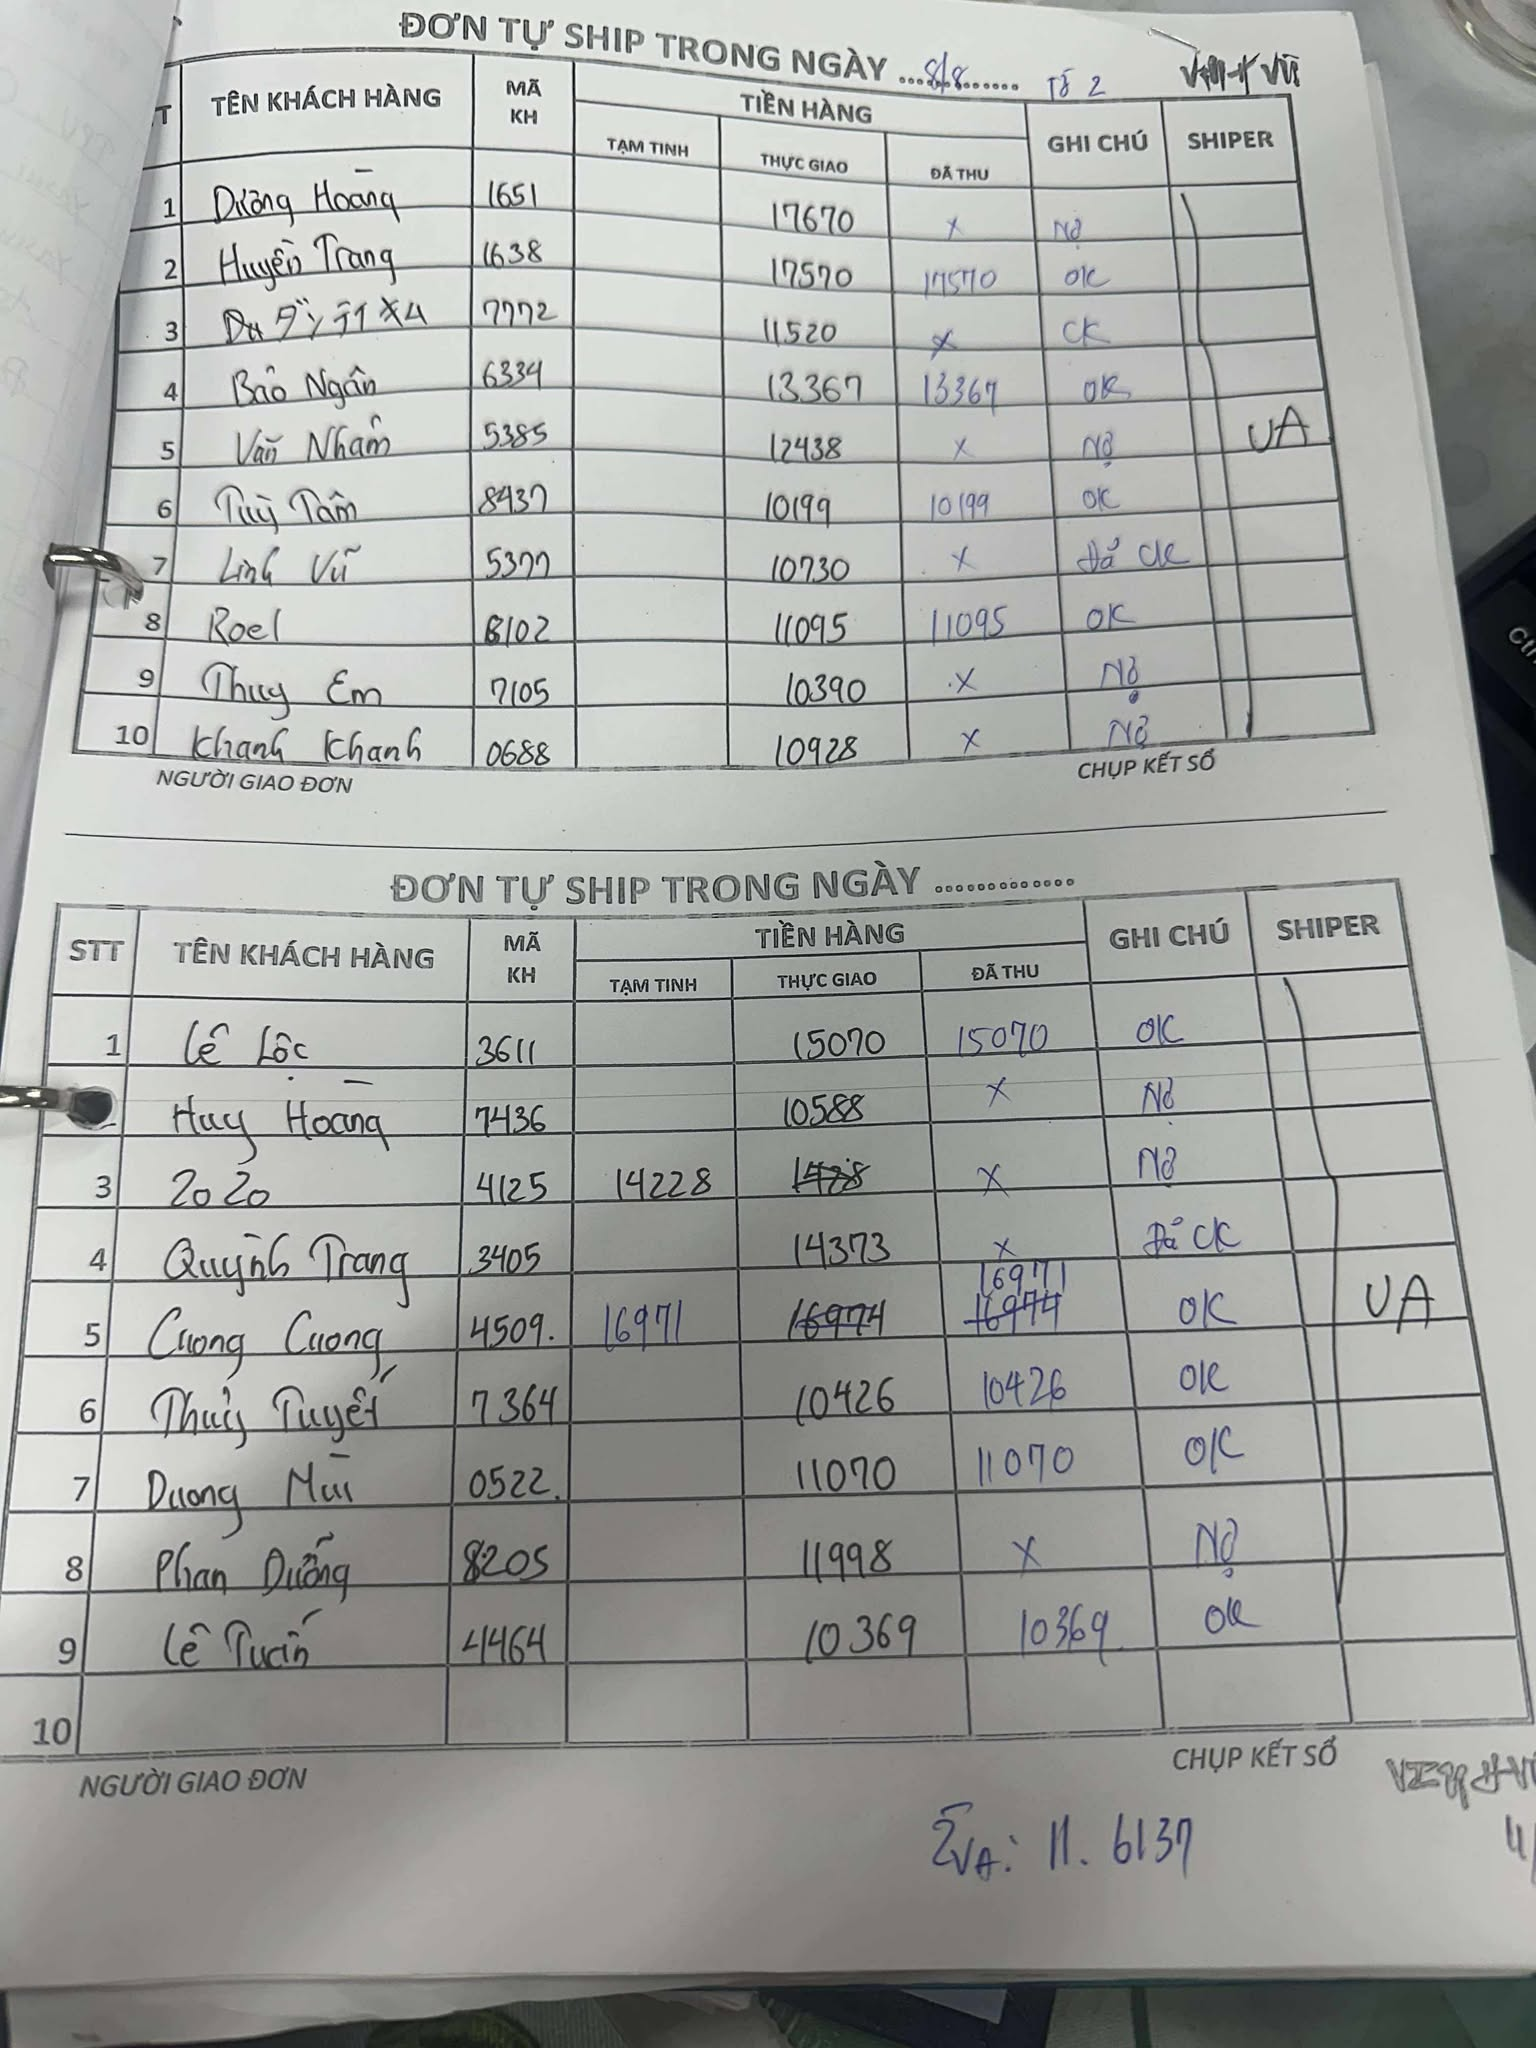 ĐƠN TỰ SHIP TRONG NGÀY ...8/8...... Tờ 2
T TÊN KHÁCH HÀNG MÃ KH TIỀN HÀNG GHI CHÚ SHIPER
TẠM TINH THỰC GIAO ĐÃ THU
1 Dường Hoàng 1651 17670 x Nợ
2 Huyền Trang 1638 17570 17570 OK
3 7772 11520 x CK
4 Bảo Ngân 6334 13367 13367 OK
5 Văn Nhâm 5385 12438 x Nợ UA
6 Tuỳ Tâm 8437 10199 10199 OK
7 Linh Vũ 5377 10730 x Đã CK
8 Roel 8102 11095 11095 OK
9 Thuy Em 7105 10390 x Nợ
10 Khanh Khanh 0688 10928 x Nợ
NGƯỜI GIAO ĐƠN CHỤP KẾT SỔ
ĐƠN TỰ SHIP TRONG NGÀY .............
STT TÊN KHÁCH HÀNG MÃ KH TIỀN HÀNG GHI CHÚ SHIPER
TẠM TINH THỰC GIAO ĐÃ THU
1 Lê Lộc 3611 15070 15070 OK
Huy Hoàng 7436 10588 x Nợ
3 2020 4125 14228 1428 x Nợ
4 Quỳnh Trang 3405 14373 x Đã CK
16971
5 Cuong Cuong 4509. 16971 16974 16974 OK UA
6 Thuỷ Tuyết 7364 10426 10426 OK
7 Duong Mùi 0522. 11070 11070 OK
8 Phan Dưỡng 8205 11998 x Nợ
9 Lê Tuấn 4464 10369 10369 OK
10
NGƯỜI GIAO ĐƠN CHỤP KẾT SỔ
ΣVA: 11. 6137